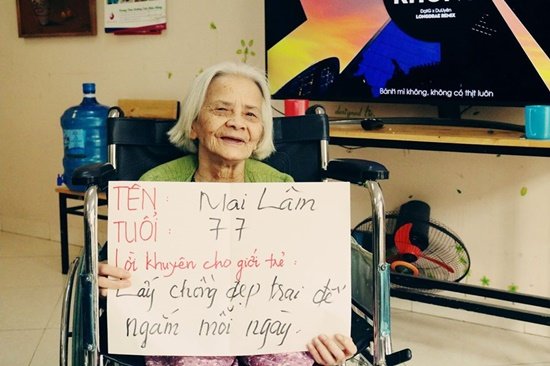 DatG x DuUyên
LONGDRAE REMIX
Bánh mì không, không có thịt luôn
TÊN : Mai Lâm
TUỔI : 77
Lời khuyên cho giới trẻ :
Lấy chồng đẹp trai để
ngắm mỗi ngày.